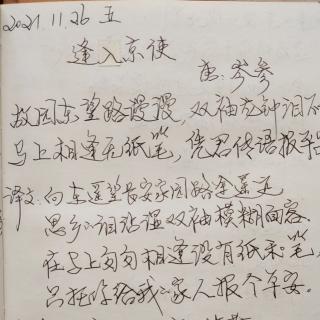 2021.11.26 五
逢入京使
唐.岑参
故园东望路漫漫,双袖龙钟泪不
马上相逢无纸笔,凭君传语报平
译文:向东遥望长安家园路途遥远
思乡泪沾湿双袖模糊面容
在马上匆匆相逢没有纸和笔,
只托你给我家人报个平安。